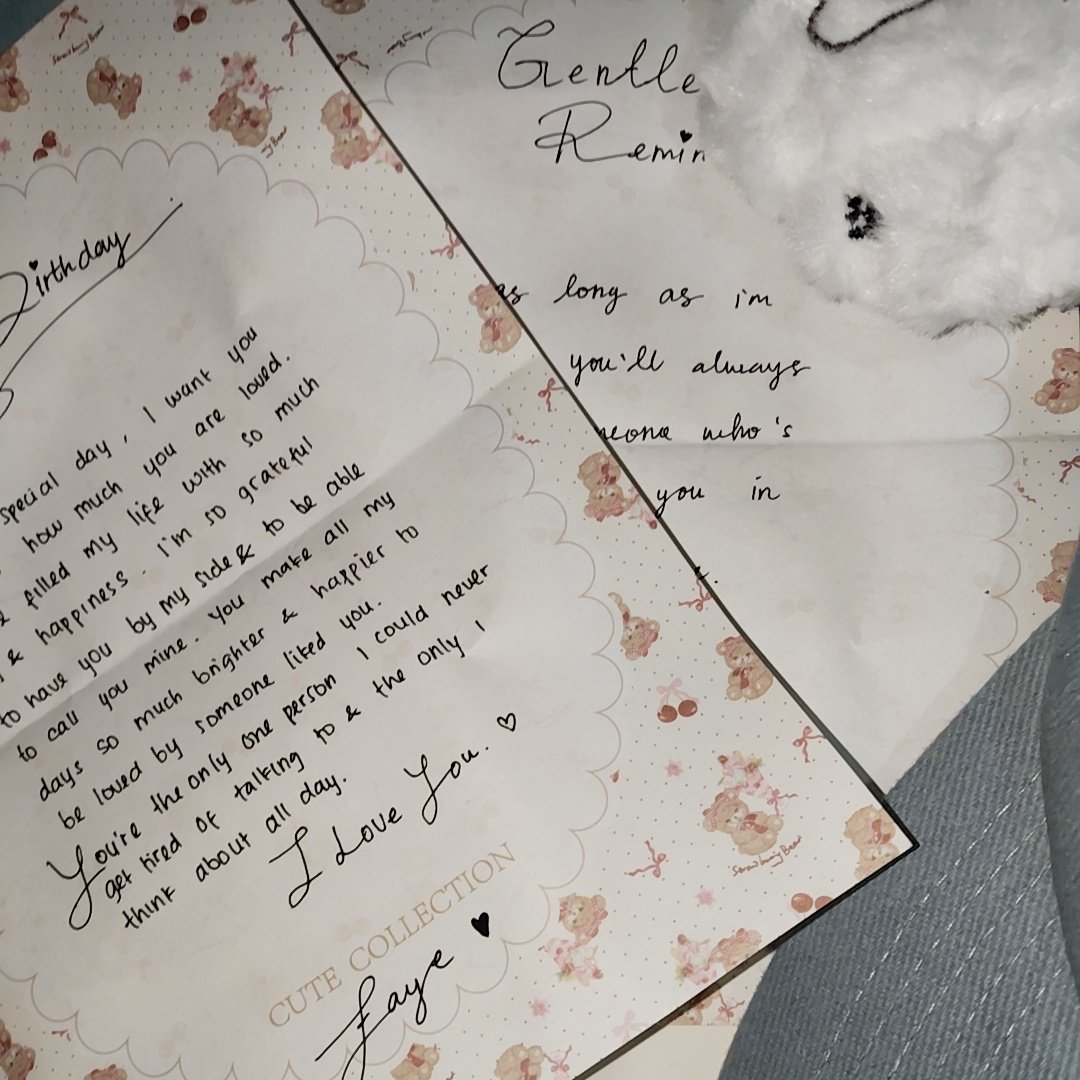 Birthday
special day, I want you
how much you are loved.
filled my life with so much
& happiness. I'm so grateful
to have you by my side & to be able
to call you mine. You make all my
days so much brighter & happier to
be loved by someone liked you.
You're the only one person I could never
get tired of talking to & the only I
think about all day.
I Love You.
CUTE COLLECTION
Faye
Gentle
Remin
as long as i'm
you'll always
meone who's
you in
Strawberry Bear